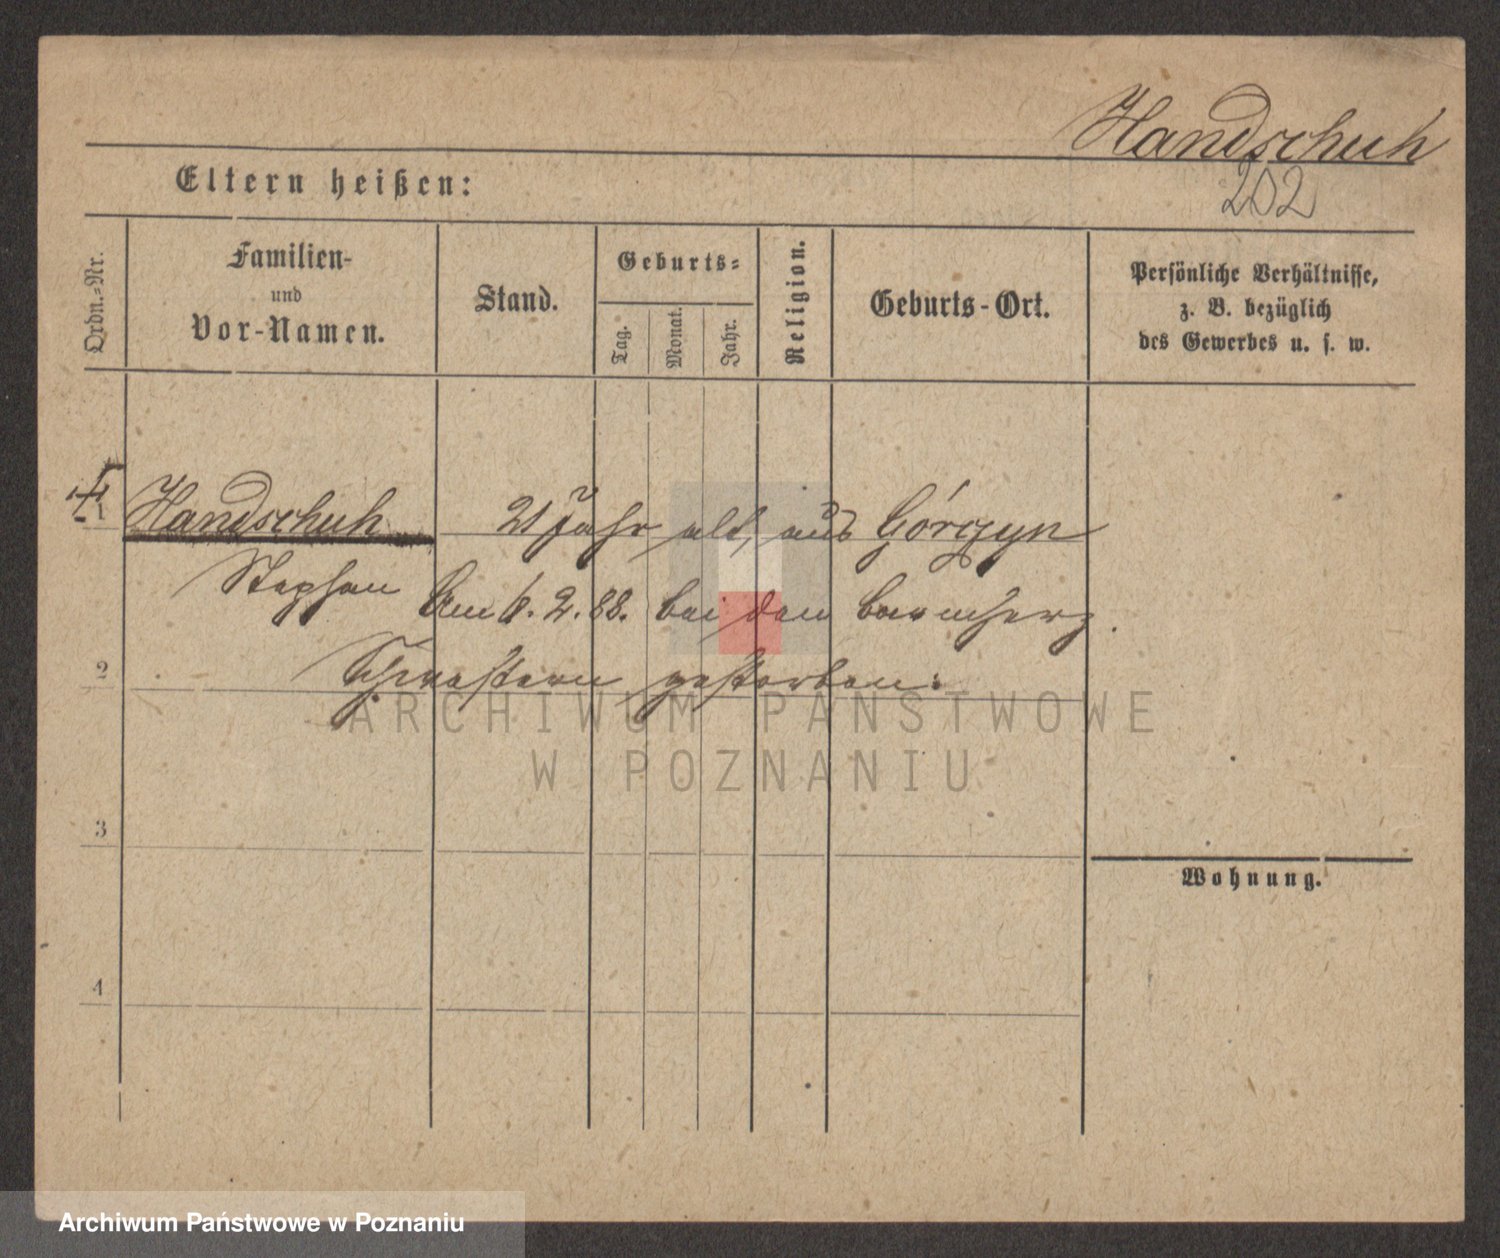 Handschuh
202
Eltern heißen:
Ordn.-Nr.
Familien-
und
Vor-Namen.
Stand.
Geburts-
Tag.
Monat.
Jahr.
Religion.
Geburts-Ort.
Persönliche Verhältnisse,
z. B. bezüglich
des Gewerbes u. s. w.
1 Handschuh 21 Jahr alt, aus Górczyn
Stephan Am 6. 2. 88. bei den barmherz.
2
Schwestern gestorben.
ARCHIWUM PAŃSTWOWE
W POZNANIU
3
Wohnung.
4
Archiwum Państwowe w Poznaniu